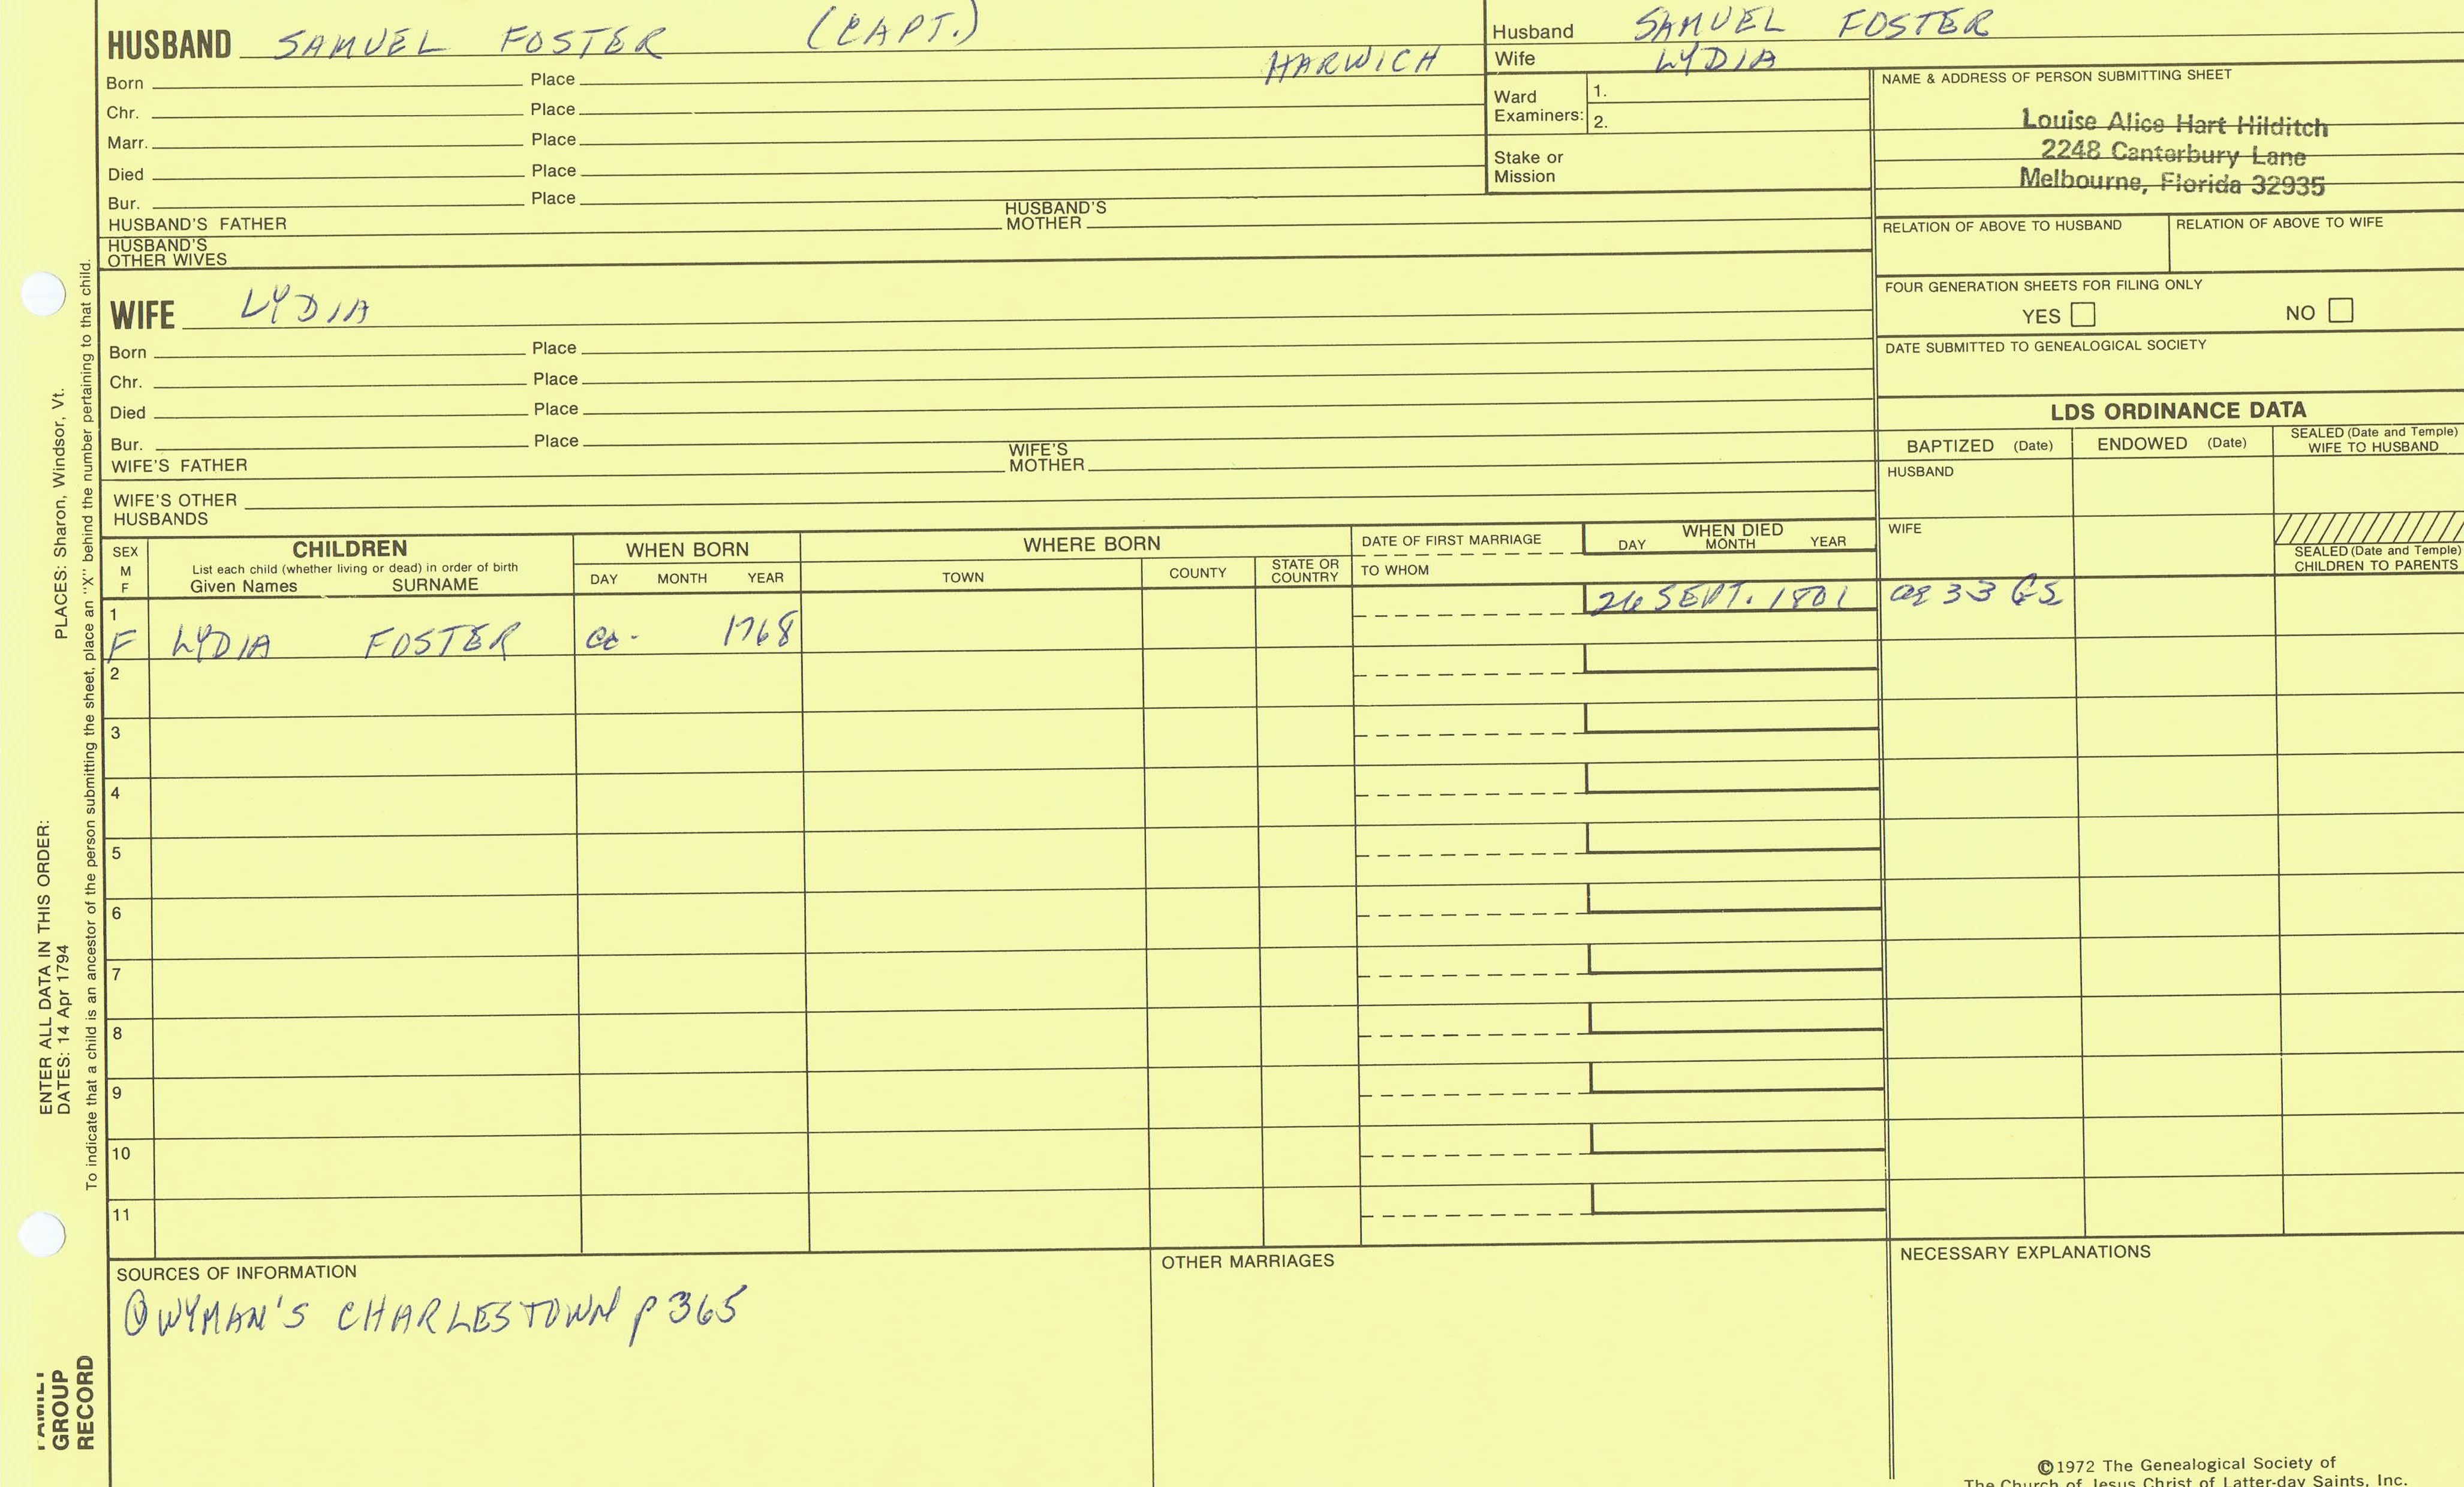 HUSBAND SAMUEL FOSTER (CAPT.)
HARWICH
Born Place
Chr. Place
Marr. Place
Died Place
Bur. Place
HUSBAND'S FATHER HUSBAND'S MOTHER
HUSBAND'S OTHER WIVES
Husband SAMUEL FOSTER
Wife LYDIA
Ward Examiners: 1.
2.
Stake or Mission
NAME & ADDRESS OF PERSON SUBMITTING SHEET
Louise Alice Hart Hilditch
2248 Canterbury Lane
Melbourne, Florida 32935
RELATION OF ABOVE TO HUSBAND RELATION OF ABOVE TO WIFE
FOUR GENERATION SHEETS FOR FILING ONLY
YES NO
DATE SUBMITTED TO GENEALOGICAL SOCIETY
WIFE LYDIA
Born Place
Chr. Place
Died Place
Bur. Place
WIFE'S FATHER WIFE'S MOTHER
WIFE'S OTHER HUSBANDS
LDS ORDINANCE DATA
BAPTIZED (Date) ENDOWED (Date) SEALED (Date and Temple) WIFE TO HUSBAND
HUSBAND
WIFE
SEALED (Date and Temple) CHILDREN TO PARENTS
SEX M F
CHILDREN
List each child (whether living or dead) in order of birth
Given Names SURNAME
WHEN BORN
DAY MONTH YEAR
WHERE BORN
TOWN COUNTY STATE OR COUNTRY
DATE OF FIRST MARRIAGE
TO WHOM
WHEN DIED
DAY MONTH YEAR
1 26 SEPT. 1801 ae 33 GS
F LYDIA FOSTER ca. 1768
2
3
4
5
6
7
8
9
10
11
SOURCES OF INFORMATION
① WYMAN'S CHARLESTOWN p 365
OTHER MARRIAGES
NECESSARY EXPLANATIONS
©1972 The Genealogical Society of
The Church of Jesus Christ of Latter-day Saints, Inc.
ENTER ALL DATA IN THIS ORDER:
DATES: 14 Apr 1794 PLACES: Sharon, Windsor, Vt.
To indicate that a child is an ancestor of the person submitting the sheet, place an "X" behind the number pertaining to that child.
FAMILY
GROUP
RECORD